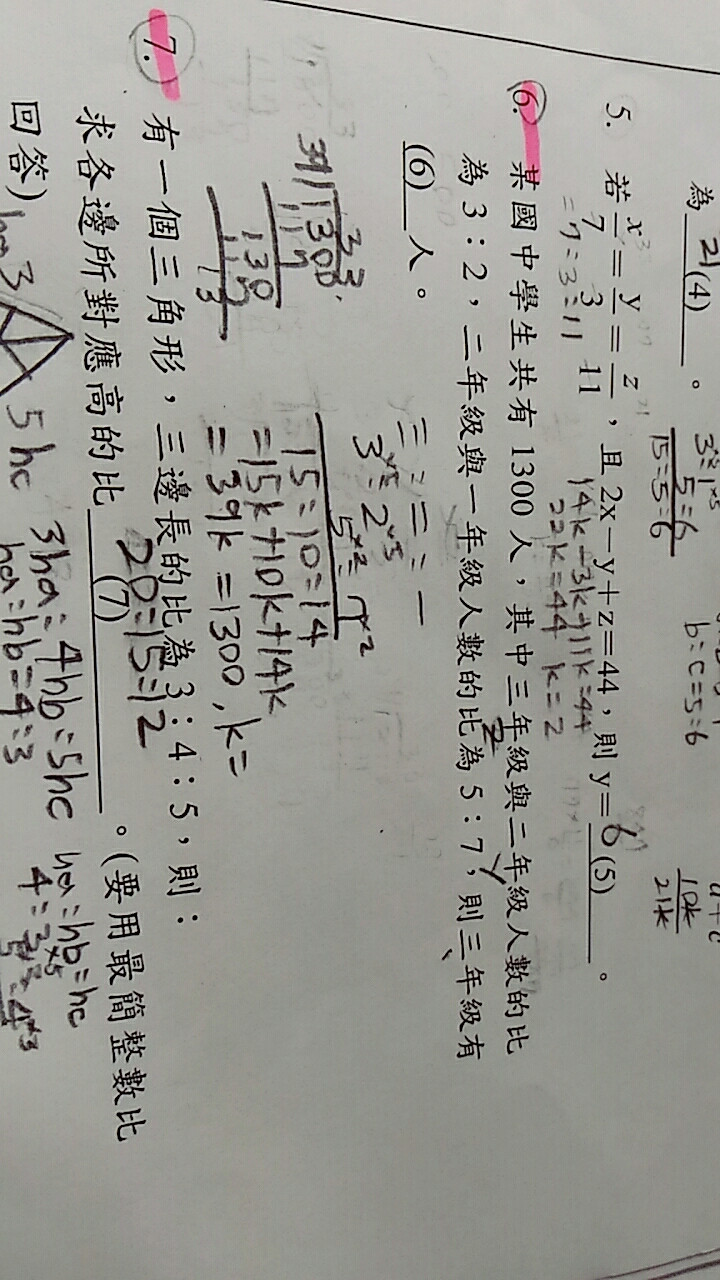 為 21 (4) 。
3:1
5:6
15:5:6
b:c=5:6
10k
21k
5. 若 x/7 = y/3 = z/11 , 且 2x-y+z=44 , 則 y= 6 (5) 。
=7:3:11
14k-3k+11k=44
22k=44 k=2
6. 某國中學生共有 1300 人,其中三年級與二年級人數的比
為 3:2,二年級與一年級人數的比為 5:7,則三年級有
(6) 人。
三:二:一
3×5:2×5
5×2:7×2
15:10:14
=15k+10k+14k
=39k=1300, k=
33
39 1300
117
130
117
13
7. 有一個三角形,三邊長的比為 3:4:5,則:
求各邊所對應高的比 20:15:12 (7) 。(要用最簡整數比
回答)
ha 3
5 hc
3ha=4hb=5hc
ha:hb=4:3
ha:hb:hc
4:3×5